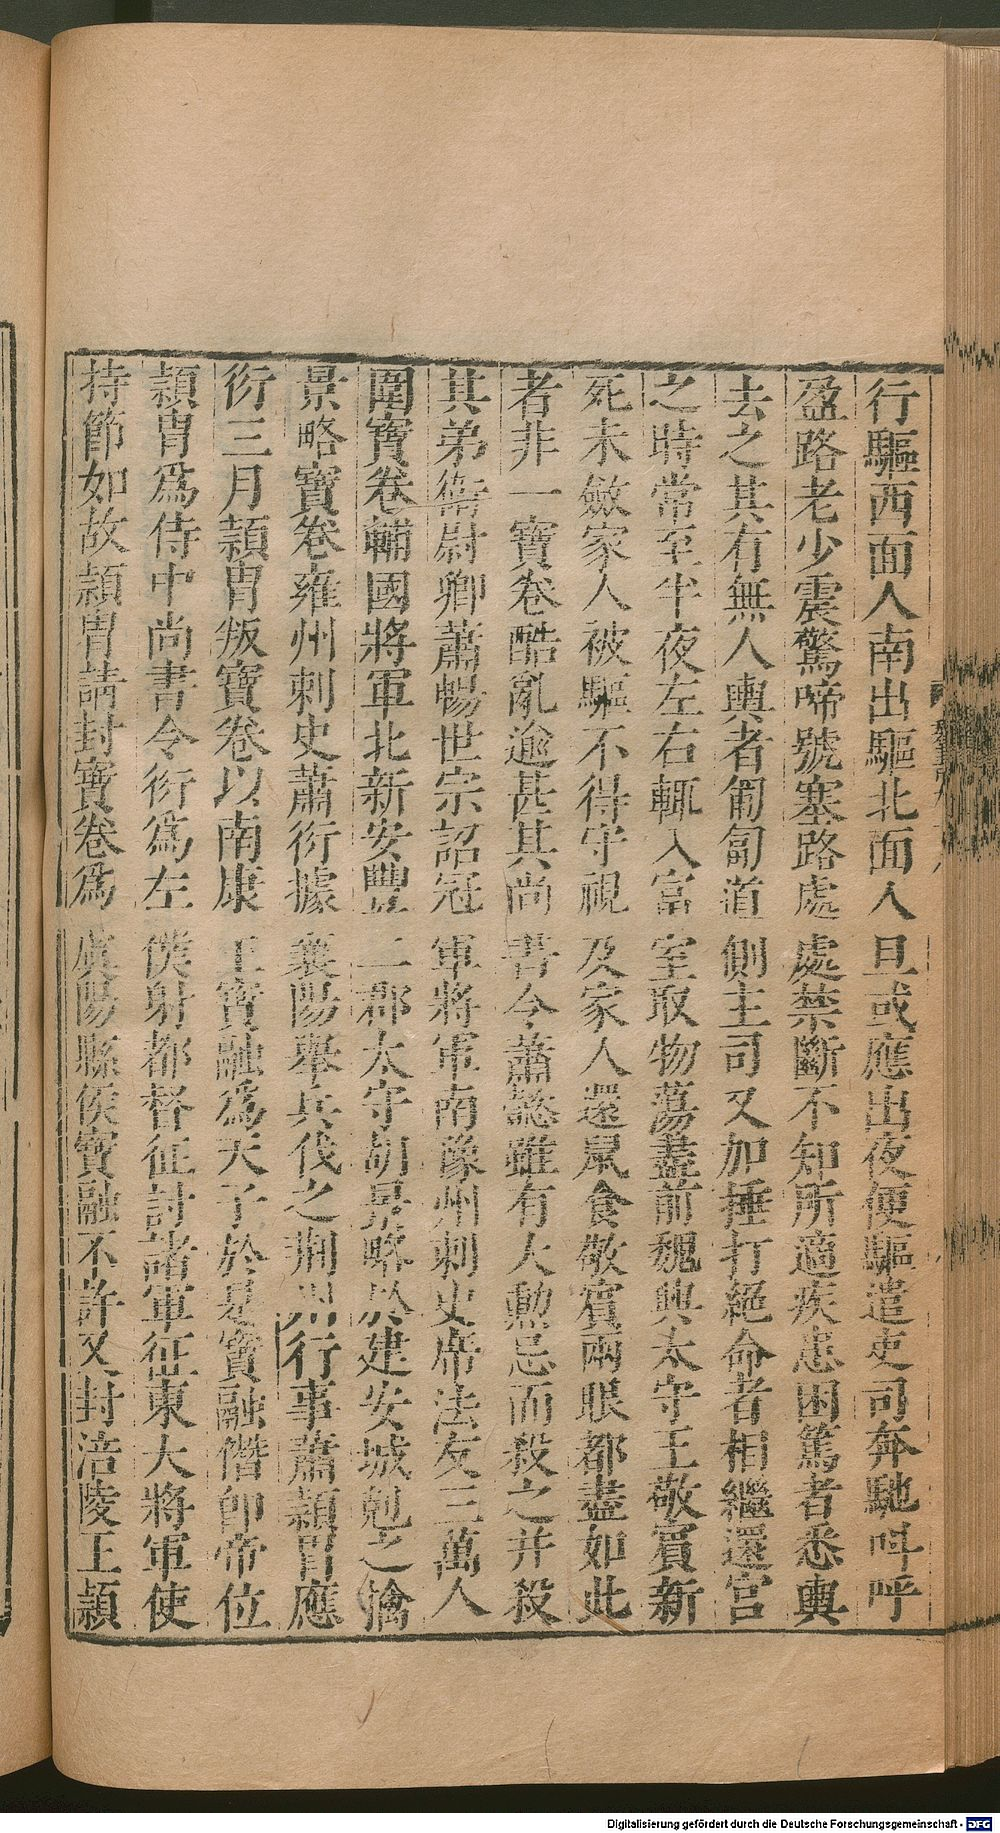 行驅西面人南出驅北面人旦或應出夜便驅遣吏司奔馳呌呼
盈路老少震驚啼號塞路處處禁斷不知所適疾患困篤者悉輿
去之其有無人輿者匍匐道側主司又加捶打絕命者相繼還宮
之時常至半夜左右輒入富室取物蕩盡前魏興太守王敬賓新
死未斂家人被驅不得守視及家人還鼠食敬賓兩眼都盡如此
者非一寶卷酷亂逾甚其尚書令蕭懿雖有大勲忌而殺之并殺
其弟衞尉卿蕭暢世宗詔冠軍將軍南豫州刺史席法友三萬人
圍寶卷輔國將軍北新安豐二郡太守胡景略於建安城剋之擒
景略寶卷雍州刺史蕭衍據襄陽舉兵伐之荆州行事蕭穎胄應
衍三月穎胄叛寶卷以南康王寶融爲天子於是寶融僭卽帝位
穎胄爲侍中尚書令衍爲左僕射都督征討諸軍征東大將軍使
持節如故穎胄請封寶卷爲虞陽縣侯寶融不許又封涪陵王穎
Digitalisierung gefördert durch die Deutsche Forschungsgemeinschaft - DFG